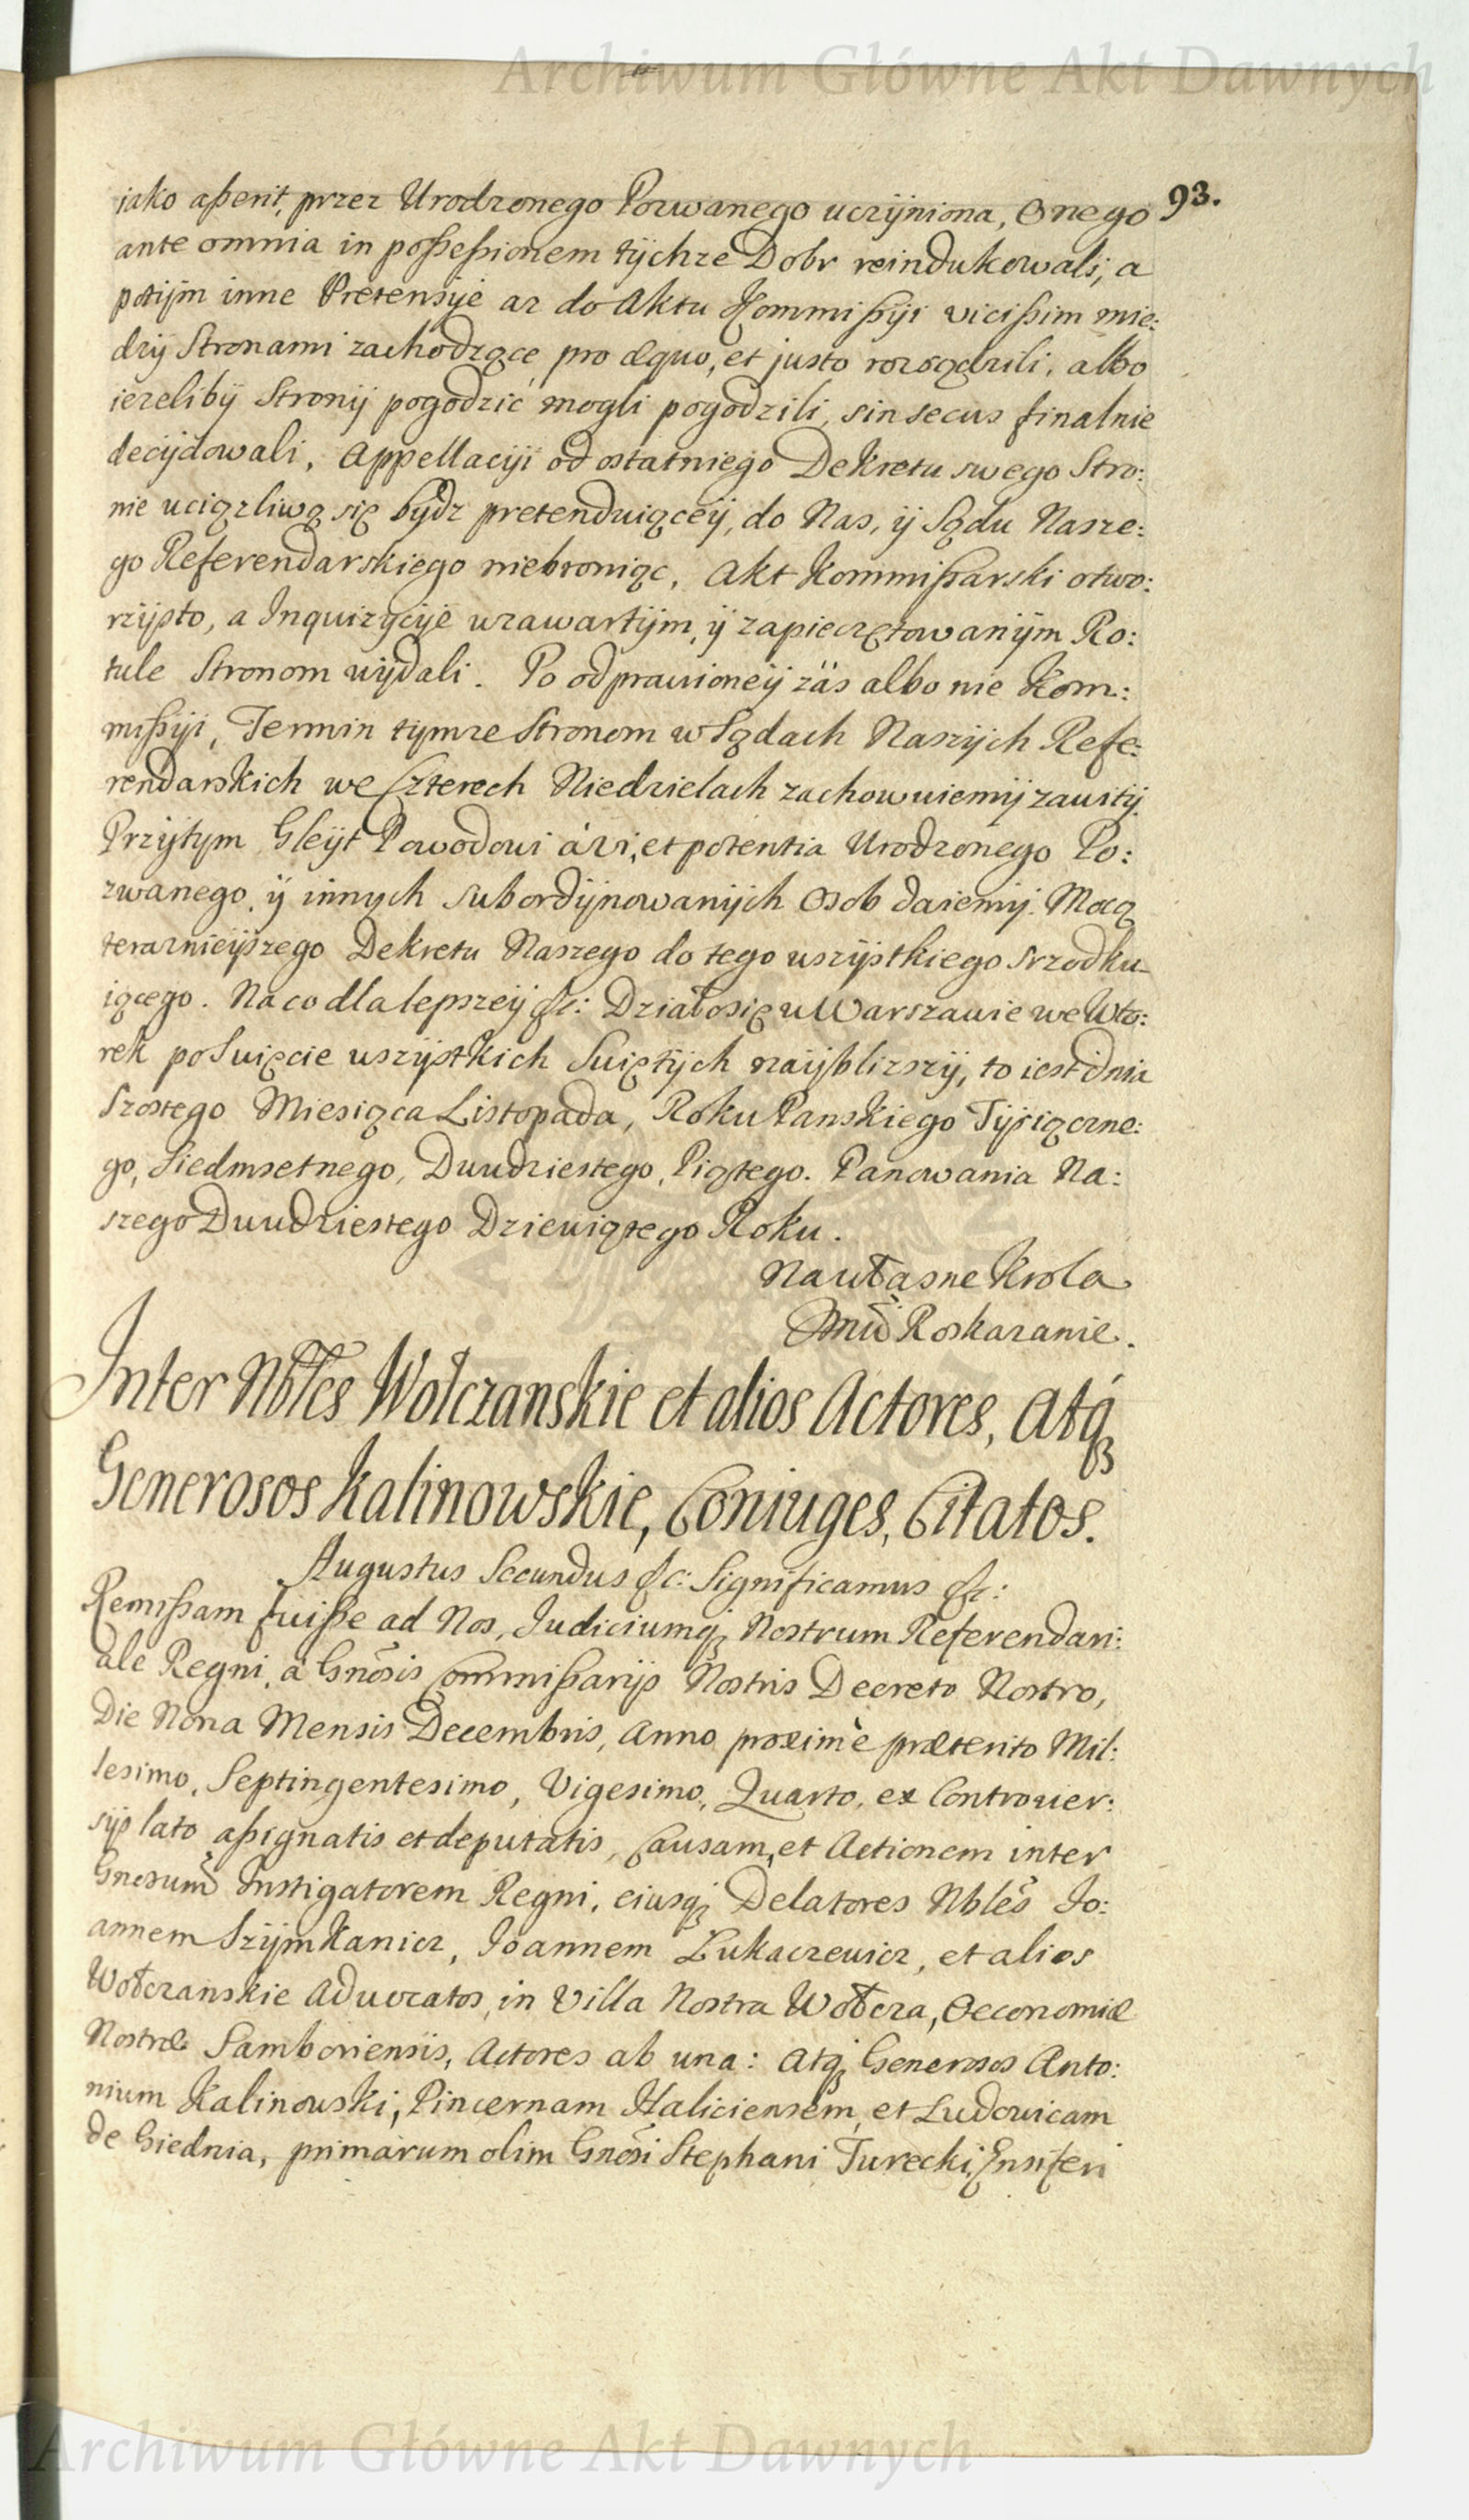 Archiwum Główne Akt Dawnych
93.
iako aßerit, przez Urodzonego Pozwanego uczÿniona, Onego
ante omnia in poßeßionem tÿchze Dobr reindukowali, a
potÿm inne Pretensÿe az do Aktu Kommißÿi vicißim mie:
dzÿ Stronami zachodzące pro æquo, et justo rozsądzili, albo
iezelibÿ Stronÿ pogodzić mogli pogodzili, sin secus finalnie
decÿdowali, Appellacÿi od ostatniego Dekretu swego Stro:
nie uciązliwą się bÿdz pretenduiąceÿ, do Nas, ÿ Sądu Nasze:
go Referendarskiego niebroniąc, Akt Kommißarski otwo:
rzÿsto, a Inquizÿcÿe wzawartÿm, ÿ zapieczętowanÿm Ro:
tule Stronom wÿdali. Po odprawioneÿ zäs albo nie Kom:
mißÿi, Termin tymze Stronom w Sądach Naszÿch Refe:
rendarskich we Czterech Niedzielach zachowuiemÿ zawitÿ.
Przÿtym Gleÿt Powodowi à vi, et potentia Urodzonego Po:
zwanego, ÿ innych subordÿnowanÿch Osob daiemÿ. Mocą
teraznieÿszego Dekretu Naszego do tego wszÿstkiego srzodku
iącego. Na co dla lepszeÿ &c: Działo się w Warszawie we Wto:
rek po Swięcie wszÿstkich Swiętÿch naÿblizszÿ, to iest dnia
Szostego Miesiąca Listopada, Roku Panskiego Tÿsiączne:
go, Siedmsetnego, Dwudziestego, Piątego. Panowania Na:
szego Dwudziestego Dziewiątego Roku.
Na własne Krola
Jmci Roskazanie.
Inter Nbles Wołczanskie et alios Actores, Atq́
Generosos Kalinowskie, Coniuges, Citatos.
Augustus Secundus &c: Significamus &c:
Remißam fuiße ad Nos, Iudiciumq́ Nostrum Referendari:
ale Regni, à Gnosis Commißarÿs Nostris Decreto Nostro,
Die Nona Mensis Decembris, Anno proximè præterito Mil:
lesimo, Septingentesimo, Vigesimo, Quarto, ex Controver:
sÿs lato aßignatis et deputatis, Causam, et Actionem inter
Gnosum Instigatorem Regni, eiusq́ Delatores Nbles Io:
annem Szÿmkanicz, Ioannem Łukaczewicz, et alios
Wołczanskie Advocatos, in Villa Nostra Wołcza, Oeconomiæ
Nostræ Samboriensis, Actores ab una: Atq́ Generosos Anto:
nium Kalinowski, Pincernam Haliciensem, et Ludovicam
de Giednia, primarum olim Gnosi Stephani Turecki, Ensiferi
Archiwum Główne Akt Dawnych